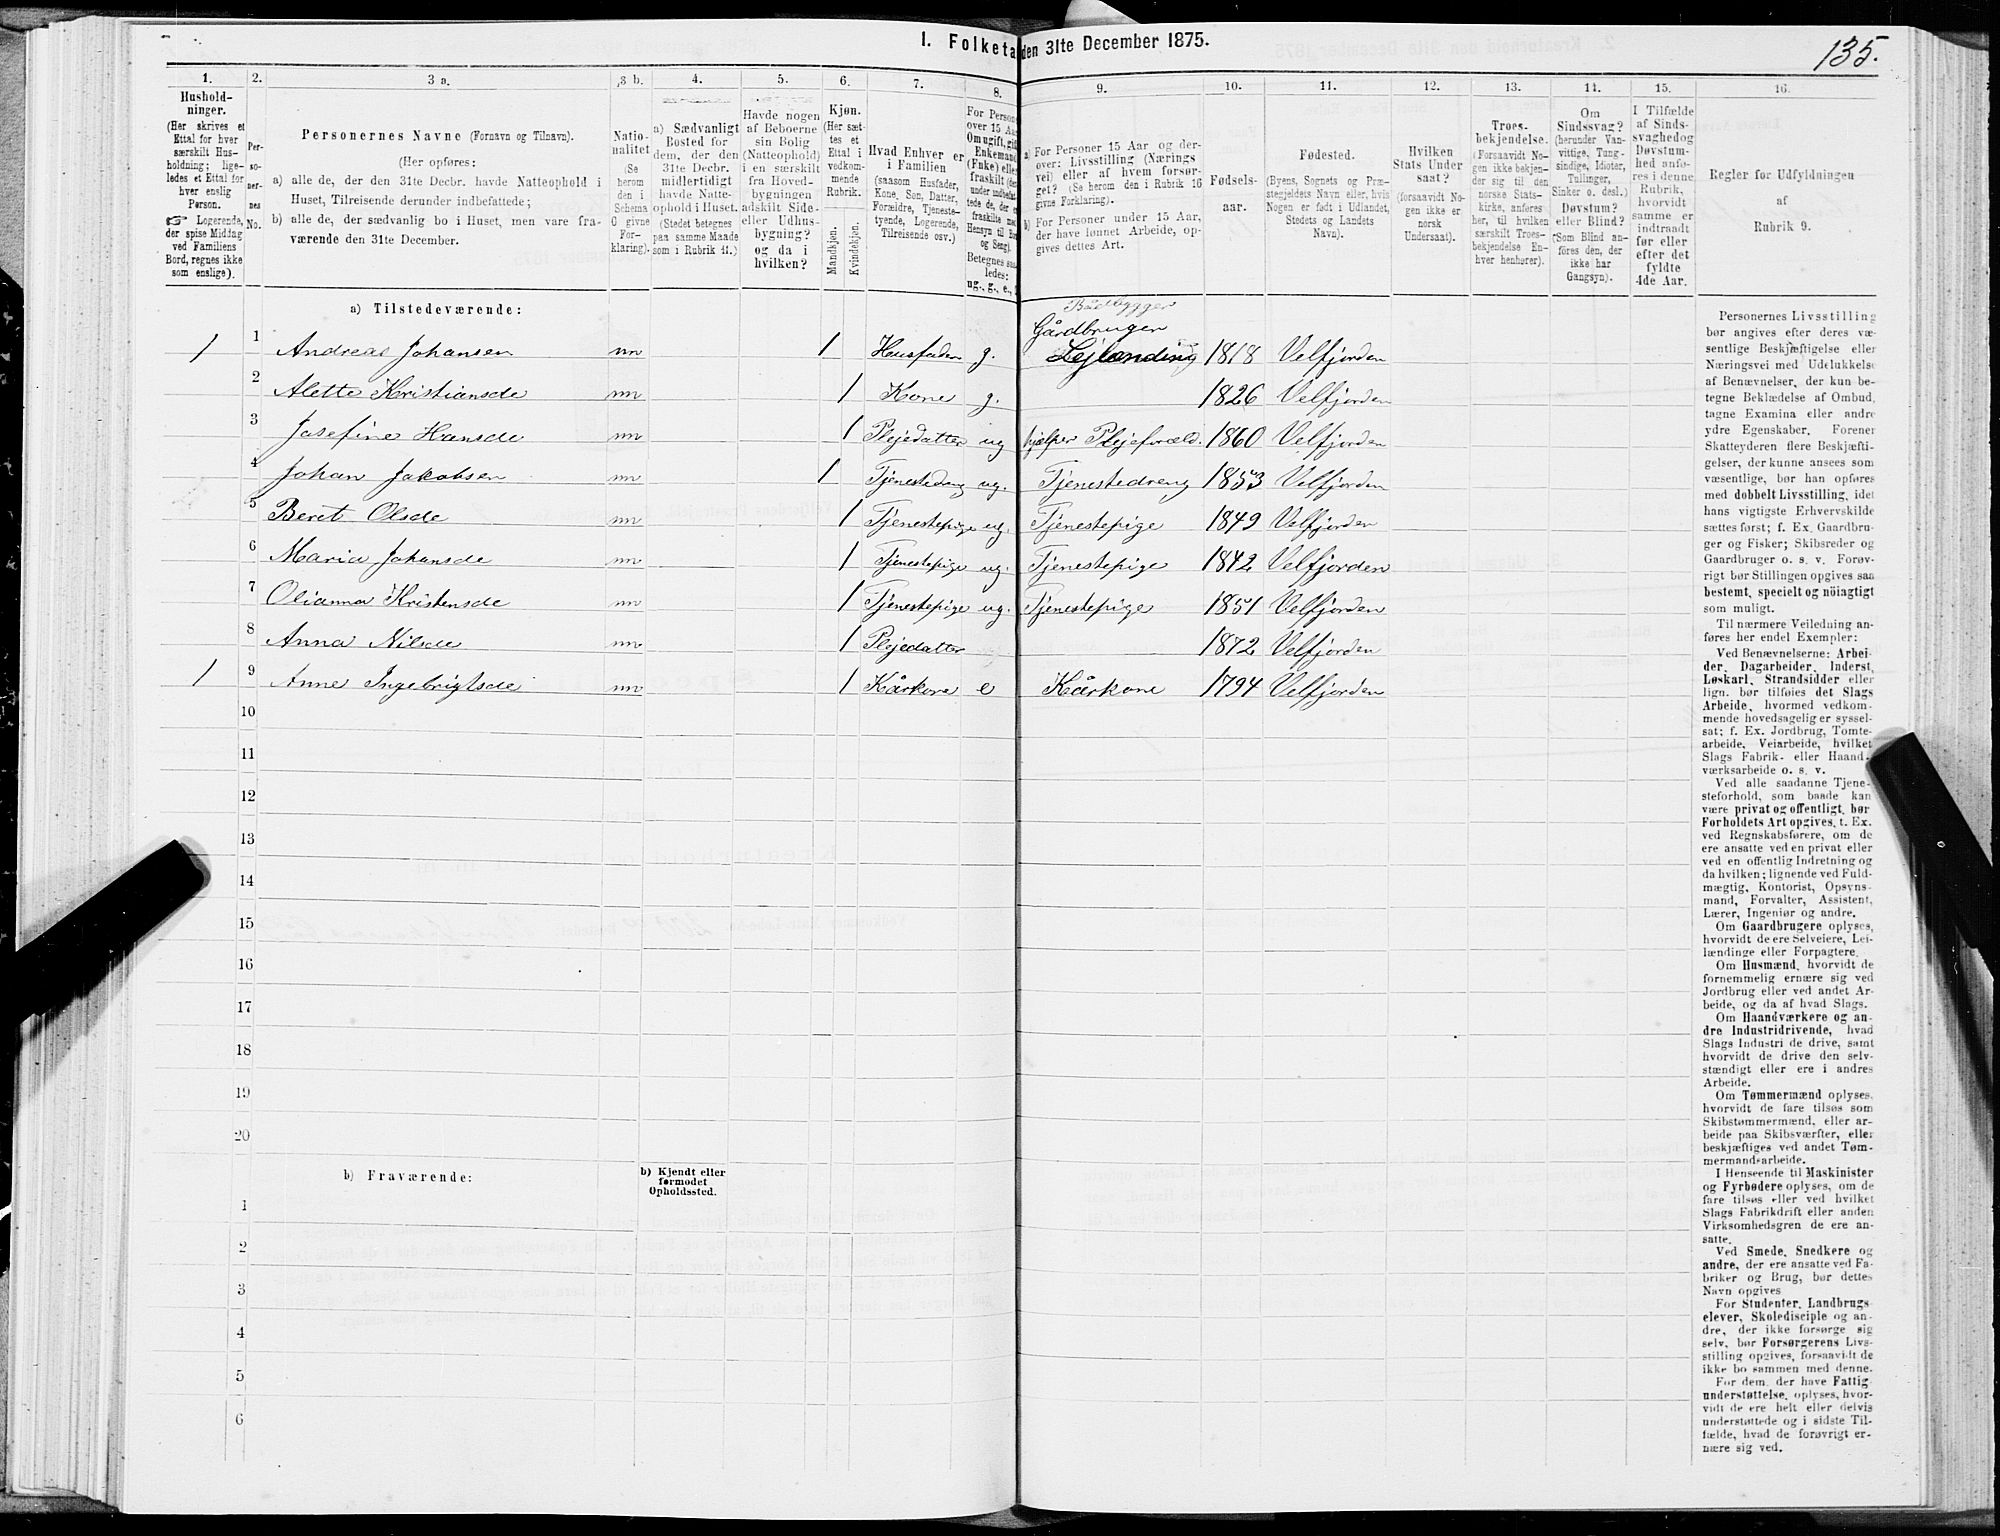 1. Folketa den 31te December 1875.
135.
1. 2. 3 a. 3 b. 4. 5. 6. 7. 8. 9. 10. 11. 12. 13. 14. 15. 16.
Hushold-
ninger.
(Her skrives et
Ettal for hver
særskilt Hus-
holdning; lige-
ledes et Ettal for
hver enslig
Person.
☞ Logerende,
der spise Middag
ved Familiens
Bord, regnes ikke
som enslige).
Per-
so-
ner-
nes
No.
Personernes Navne (Fornavn og Tilnavn).
(Her opføres:
a) alle de, der den 31te Decbr. havde Natteophold i
Huset, Tilreisende derunder indbefattede;
b) alle de, der sædvanlig bo i Huset, men vare fra-
værende den 31te December.
Natio-
nalitet
(Se
herom
den i
Schema
0 givne
For-
klaring).
a) Sædvanligt
Bosted for
dem, der den
31te Decbr.
midlertidigt
havde Natte-
ophold i Huset.
(Stedet betegnes
paa samme Maade
som i Rubrik 11.)
Havde nogen
af Beboerne
sin Bolig
(Natteophold)
i en særskilt
fra Hoved-
bygningen
adskilt Side-
eller Udhus-
bygning?
og da i
hvilken?
Kjøn.
(Her sæt-
tes et
Ettal i
vedkom-
mende
Rubrik.
Mandkjøn.
Kvindekjøn.
Hvad Enhver er
i Familien
(saasom Husfader,
Kone, Søn, Datter,
Forældre, Tjeneste-
tyende, Logerende,
Tilreisende osv.)
For Person
over 15 Aa
Om ugift, gift
Enkemand
(Enke) elle
fraskilt (der
under indbefat-
tede de, der e
fraskilte med
Hensyn til Bo
og Seng).
Betegnes saa-
ledes:
ug., g., e.,
a) For Personer 15 Aar og der-
over: Livsstilling (Nærings
vei) eller af hvem forsør-
get? (Se herom den i Rubrik 16
givne Forklaring).
b) For Personer under 15 Aar,
der have lønnet Arbeide, op-
gives dettes Art.
Fødsels-
aar.
Fødested.
(Byens, Sognets og Præ-
stegjeldets Navn eller, hvis
Nogen er født i Udlandet,
Stedets og Landets
Navn).
Hvilken
Stats Under
saat?
(forsaavidt No-
gen ikke er
norsk
Undersaat).
Troes-
bekjendelse.
(Forsaavidt No-
gen ikke bekjen-
der sig til den
norske Stats-
kirke, anføres
her, til hvilken
særskilt Troes-
bekjendelse En-
hver henhører).
Om
Sindssvag?
(herunder Van-
vittige, Tung-
sindige, Idioter,
Tullinger,
Sinker o. desl.)
Døvstum?
eller Blind?
(Som Blind an-
føres den, der
ikke har
Gangsyn).
I Tilfælde
af Sinds-
svaghed og
Døvstum-
hed anfø-
res i denne
Rubrik,
hvorvidt
samme er
indtraadt
før eller
efter det
fyldte
4de Aar.
Regler for Udfyldningen
af
Rubrik 9.
a) Tilstedeværende:
Bådbygger
Gårdbruger
1 1 Andreas Johansen nn 1 Husfader g. Lejlænding 1818 Velfjorden
2 Alette Kristiansde nn 1 Kone g. 1826 Velfjorden
3 Josefine Hansde nn 1 Plejedatter ug hjelper Plejeforæld. 1860 Velfjorden
4 Johan Jakobsen nn 1 Tjenestedreng ug. Tjenestedreng 1853 Velfjorden
5 Beret Olsde nn 1 Tjenestepige ug. Tjenestepige 1849 Velfjorden
6 Maria Johansde nn 1 Tjenestepige ug. Tjenestepige 1842 Velfjorden
7 Olianna Kristensde nn 1 Tjenestepige ug. Tjenestepige 1851 Velfjorden
8 Anna Nilsde nn 1 Plejedatter 1872 Velfjorden
1 9 Anne Ingebrigtsde nn 1 Kårkone e Kårkone 1794 Velfjorden
10
11
12
13
14
15
16
17
18
19
20
b) Fraværende:
b) Kjendt eller
formodet
Opholdssted.
1
2
3
4
5
6
Personernes Livsstilling
bør angives efter deres væ-
sentlige Beskjæftigelse eller
Næringsvei med Udelukkelse
af Benævnelser, der kun be-
tegne Beklædelse af Ombud,
tagne Examina eller andre
ydre Egenskaber. Forener
Skatteyderen flere Beskjæfti-
gelser, der kunne ansees som
væsentlige, bør han opføres
med dobbelt Livsstilling, idet
hans vigtigste Erhvervskilde
sættes først; f. Ex. Gaardbru-
ger og Fisker; Skibsreder og
Gaardbruger o. s. v. Forøv-
rigt bør Stillingen opgives saa
bestemt, specielt og nöiagtigt
som muligt.
Til nærmere Veiledning an-
føres her endel Exempler:
Ved Benævnelserne: Arbei-
der, Dagarbeider, Inderst,
Løskarl, Strandsidder eller
lign. bør tilføies det Slags
Arbeide, hvormed vedkom-
mende hovedsagelig er syssel-
sat; f. Ex. Jordbrug, Tomte-
arbeide, Veiarbeide, hvilket
Slags Fabrik- eller Haand-
værksarbeide o. s. v.
Ved alle saadanne Tjene-
steforhold, som baade kan
være privat og offentligt, bør
Forholdets Art opgives, t. Ex.
ved Regnskabsførere, om de
ere ansatte ved en privat eller
ved en offentlig Indretning og
da hvilken; lignende ved Fuld-
mægtig, Kontorist, Opsyns-
mand, Forvalter, Assistent,
Lærer, Ingeniør og andre.
Om Gaardbrugere oplyses,
hvorvidt de ere Selveiere, Lei-
lændinge eller Forpagtere.
Om Husmænd, hvorvidt de
fornemmelig ernære sig ved
Jordbrug eller ved andet Ar-
beide, og da af hvad Slags.
Om Haandværkere og an-
dre Industridrivende, hvad
Slags Industri de drive, samt
hvorvidt de drive den selv-
stændigt eller ere i andres
Arbeide.
Om Tømmermænd oplyses,
hvorvidt de fare tilsøs som
Skibstømmermænd, eller ar-
beide paa Skibsværfter, eller
beskjæftiges ved andet Tøm-
mermandsarbeide.
I Henseende til Maskinister
og Fyrbødere oplyses, om de
fare tilsøs eller ved hvilket
Slags Fabrikdrift eller anden
Virksomhedsgren de ere an-
satte.
Ved Smede, Snedkere og
andre, der ere ansatte ved Fa-
briker og Brug, bør dettes
Navn opgives
For Studenter, Landbrugs-
elever, Skoledisciple og an-
dre, der ikke forsørge sig
selv, bør Forsørgerens Livs-
stilling opgives, forsaavidt de
ikke bo sammen med denne.
For dem, der have Fattig-
understøttelse, oplyses, hvor-
vidt de ere helt eller delvis
understøttede og i sidste Til-
fælde, hvad de forøvrigt er-
nære sig ved.